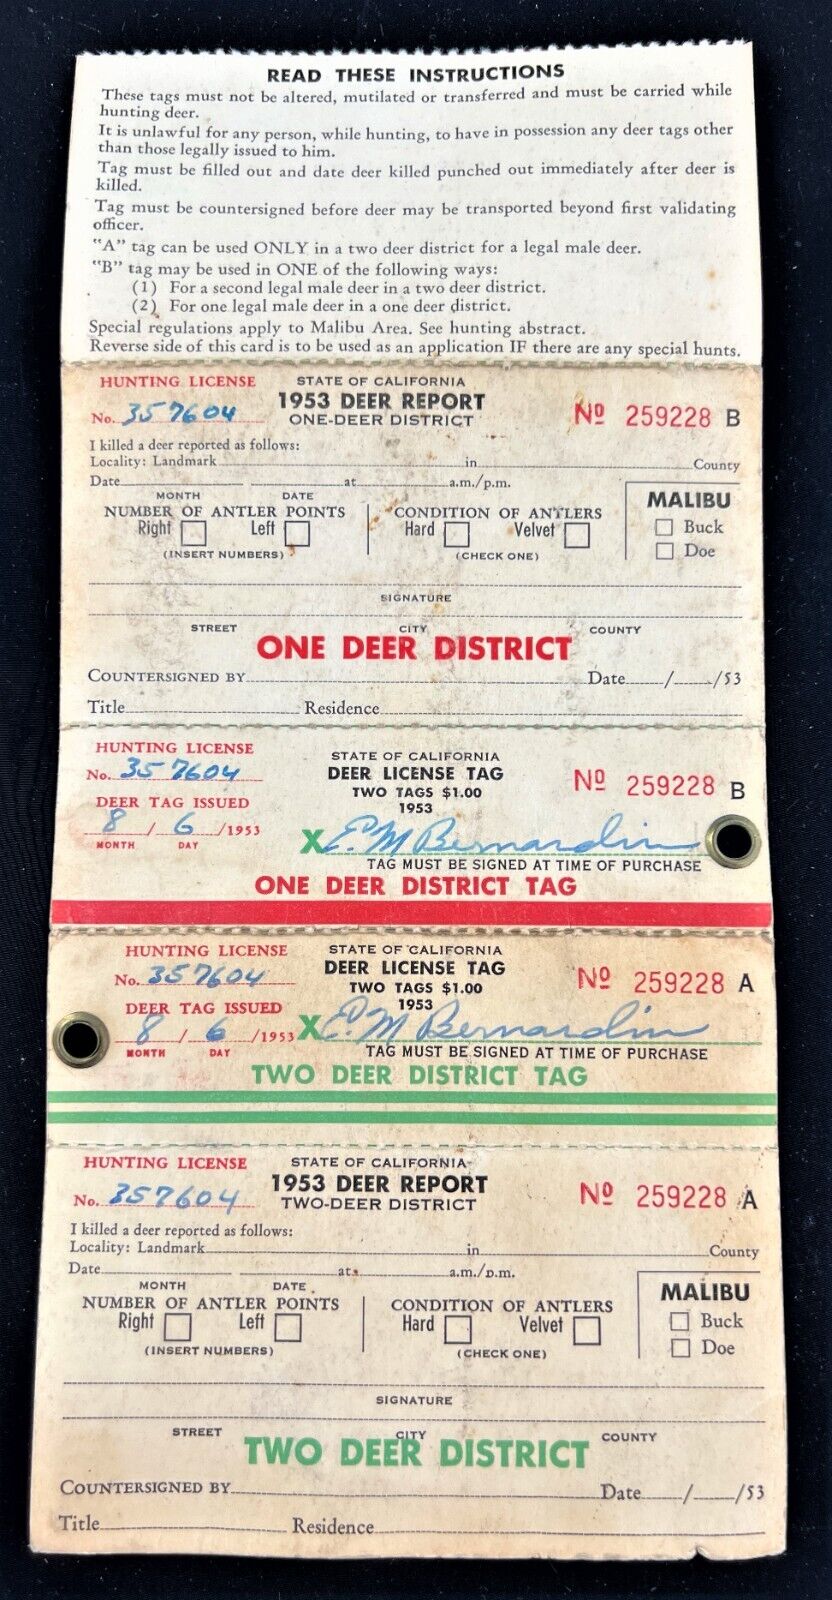 READ THESE INSTRUCTIONS
These tags must not be altered, mutilated or transferred and must be carried while
hunting deer.
It is unlawful for any person, while hunting, to have in possession any deer tags other
than those legally issued to him.
Tag must be filled out and date deer killed punched out immediately after deer is
killed.
Tag must be countersigned before deer may be transported beyond first validating
officer.
"A" tag can be used ONLY in a two deer district for a legal male deer.
"B" tag may be used in ONE of the following ways:
(1) For a second legal male deer in a two deer district.
(2) For one legal male deer in a one deer district.
Special regulations apply to Malibu Area. See hunting abstract.
Reverse side of this card is to be used as an application IF there are any special hunts.
HUNTING LICENSE STATE OF CALIFORNIA
No. 357604 1953 DEER REPORT Nº 259228 B
ONE-DEER DISTRICT
I killed a deer reported as follows:
Locality: Landmark in County
Date at a.m./p.m.
MONTH DATE
NUMBER OF ANTLER POINTS CONDITION OF ANTLERS MALIBU
Right Left Hard Velvet Buck
(INSERT NUMBERS) (CHECK ONE) Doe
SIGNATURE
STREET CITY COUNTY
ONE DEER DISTRICT
COUNTERSIGNED BY Date / /53
Title Residence
HUNTING LICENSE STATE OF CALIFORNIA
No. 357604 DEER LICENSE TAG Nº 259228 B
TWO TAGS $1.00
DEER TAG ISSUED 1953
8 / 6 /1953 X E. M Bernardin
MONTH DAY TAG MUST BE SIGNED AT TIME OF PURCHASE
ONE DEER DISTRICT TAG
HUNTING LICENSE STATE OF CALIFORNIA
No. 357604 DEER LICENSE TAG Nº 259228 A
TWO TAGS $1.00
DEER TAG ISSUED 1953
8 / 6 /1953 X E. M Bernardin
MONTH DAY TAG MUST BE SIGNED AT TIME OF PURCHASE
TWO DEER DISTRICT TAG
HUNTING LICENSE STATE OF CALIFORNIA
No. 357604 1953 DEER REPORT Nº 259228 A
TWO-DEER DISTRICT
I killed a deer reported as follows:
Locality: Landmark in County
Date at a.m./p.m.
MONTH DATE
NUMBER OF ANTLER POINTS CONDITION OF ANTLERS MALIBU
Right Left Hard Velvet Buck
(INSERT NUMBERS) (CHECK ONE) Doe
SIGNATURE
STREET CITY COUNTY
TWO DEER DISTRICT
COUNTERSIGNED BY Date / /53
Title Residence